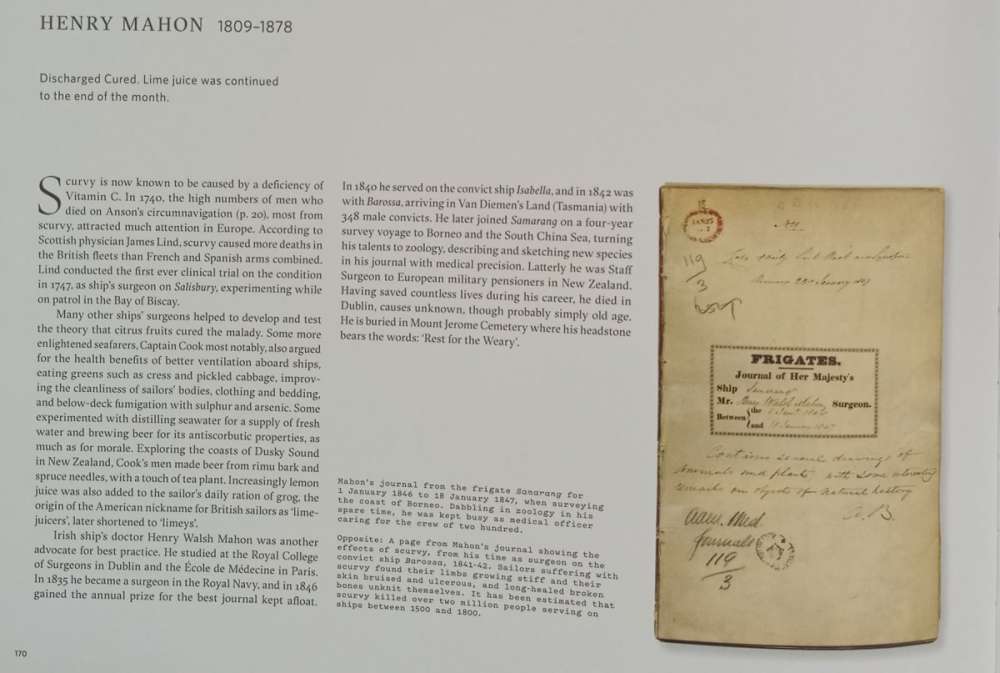 HENRY MAHON 1809–1878
Discharged Cured. Lime juice was continued
to the end of the month.
Scurvy is now known to be caused by a deficiency of
Vitamin C. In 1740, the high numbers of men who
died on Anson's circumnavigation (p. 20), most from
scurvy, attracted much attention in Europe. According to
Scottish physician James Lind, scurvy caused more deaths in
the British fleets than French and Spanish arms combined.
Lind conducted the first ever clinical trial on the condition
in 1747, as ship's surgeon on Salisbury, experimenting while
on patrol in the Bay of Biscay.
Many other ships' surgeons helped to develop and test
the theory that citrus fruits cured the malady. Some more
enlightened seafarers, Captain Cook most notably, also argued
for the health benefits of better ventilation aboard ships,
eating greens such as cress and pickled cabbage, improv-
ing the cleanliness of sailors' bodies, clothing and bedding,
and below-deck fumigation with sulphur and arsenic. Some
experimented with distilling seawater for a supply of fresh
water and brewing beer for its antiscorbutic properties, as
much as for morale. Exploring the coasts of Dusky Sound
in New Zealand, Cook's men made beer from rimu bark and
spruce needles, with a touch of tea plant. Increasingly lemon
juice was also added to the sailor's daily ration of grog, the
origin of the American nickname for British sailors as 'lime-
juicers', later shortened to 'limeys'.
Irish ship's doctor Henry Walsh Mahon was another
advocate for best practice. He studied at the Royal College
of Surgeons in Dublin and the École de Médecine in Paris.
In 1835 he became a surgeon in the Royal Navy, and in 1846
gained the annual prize for the best journal kept afloat.
In 1840 he served on the convict ship Isabella, and in 1842 was
with Barossa, arriving in Van Diemen's Land (Tasmania) with
348 male convicts. He later joined Samarang on a four-year
survey voyage to Borneo and the South China Sea, turning
his talents to zoology, describing and sketching new species
in his journal with medical precision. Latterly he was Staff
Surgeon to European military pensioners in New Zealand.
Having saved countless lives during his career, he died in
Dublin, causes unknown, though probably simply old age.
He is buried in Mount Jerome Cemetery where his headstone
bears the words: 'Rest for the Weary'.
Mahon's journal from the frigate Samarang for
1 January 1846 to 18 January 1847, when surveying
the coast of Borneo. Dabbling in zoology in his
spare time, he was kept busy as medical officer
caring for the crew of two hundred.
Opposite: A page from Mahon's journal showing the
effects of scurvy, from his time as surgeon on the
convict ship Barossa, 1841-42. Sailors suffering with
scurvy found their limbs growing stiff and their
skin bruised and ulcerous, and long-healed broken
bones unknit themselves. It has been estimated that
scurvy killed over two million people serving on
ships between 1500 and 1800.
119
3
FRIGATES.
Journal of Her Majesty's
Ship Samarang
Mr. Henry Walsh Mahon Surgeon.
Between the
and
Contains several drawings of
Animals and plants with some interesting
remarks on objects of Natural history
Adm. Med
Journals
119
3
170